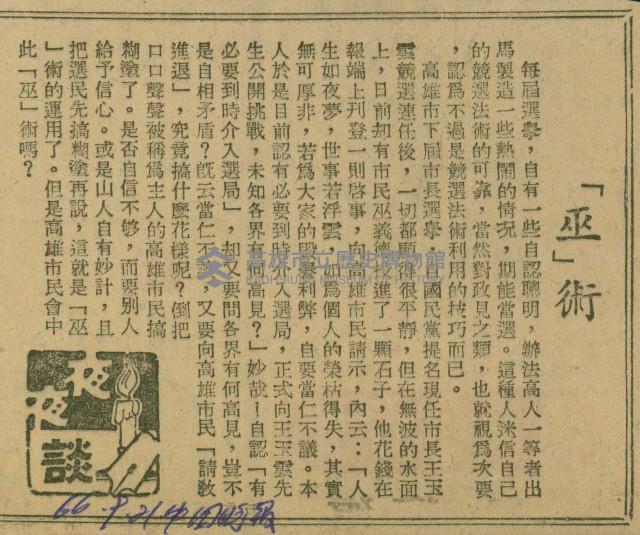 「巫」術
每屆選舉，自有一些自認聰明，辦法高人一等者出
馬製造一些熱鬧的情況，期能當選。這種人迷信自己
的競選法術的可靠，當然對政見之類，也就視爲次要
，認爲不過是競選法術利用的技巧而已。
高雄市下屆市長選舉，自國民黨提名現任市長王玉
雲競選連任後，一切都顯得很平靜，但在無波的水面
上，日前却有市民巫義德投進了一顆石子，他花錢在
報端上刊登一則啓事，向高雄市民請示，內云：「人
生如夜夢，世事若浮雲，如爲個人的榮枯得失，其實
無可厚非，若爲大家的興衰利弊，自要當仁不議。本
人於是目前認有必要到時介入選局，正式向王玉雲先
生公開挑戰，未知各界有何高見？」妙哉！自認「有
必要到時介入選局」，却又要問各界有何高見，豈不
是自相矛盾？既云當仁不議，又要向高雄市民「請教
進退」，究竟搞什麼花樣呢？倒把
口口聲聲被稱爲主人的高雄市民搞
糊塗了。是否自信不够，而要别人
給予信心。或是山人自有妙計，且
把選民先搞糊塗再說，這就是「巫
」術的運用了。但是高雄市民會中
此「巫」術嗎？
夜夜談
高雄市立歷史博物館
KAOHSIUNG MUSEUM OF HISTORY
66.9.21中國時報